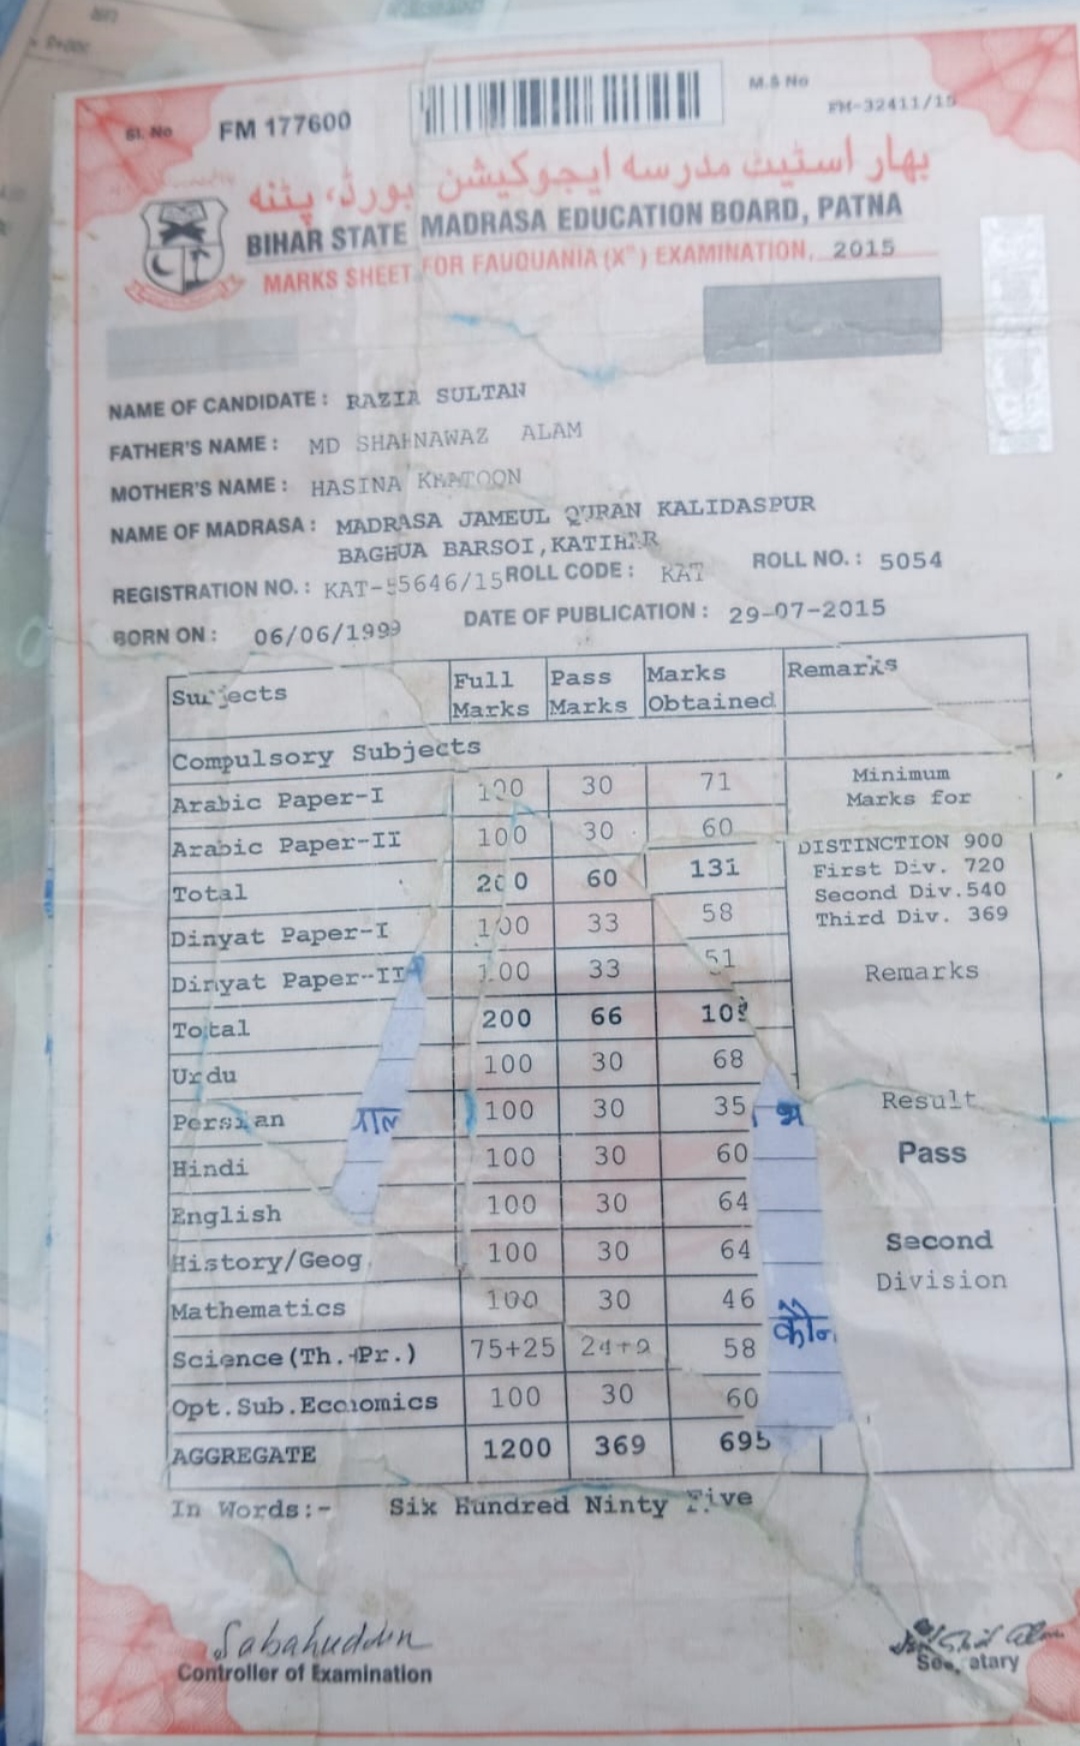 Sl. No FM 177600
M.S No
FM-32411/15
بہار اسٹیٹ مدرسہ ایجوکیشن بورڈ، پٹنہ
BIHAR STATE MADRASA EDUCATION BOARD, PATNA
MARKS SHEET FOR FAUQUANIA (Xth) EXAMINATION, 2015
NAME OF CANDIDATE : RAZIA SULTAN
FATHER'S NAME : MD SHAHNAWAZ ALAM
MOTHER'S NAME : HASINA KHATOON
NAME OF MADRASA : MADRASA JAMEUL QURAN KALIDASPUR
BAGHUA BARSOI, KATIHAR
REGISTRATION NO. : KAT-55646/15 ROLL CODE : KAT ROLL NO. : 5054
BORN ON : 06/06/1999 DATE OF PUBLICATION : 29-07-2015
Subjects Full Marks Pass Marks Marks Obtained Remarks
Compulsory Subjects
Arabic Paper-I 100 30 71
Arabic Paper-II 100 30 60
Total 200 60 131
Dinyat Paper-I 100 33 58
Dinyat Paper-II 100 33 51
Total 200 66 109
Urdu 100 30 68
Persian 100 30 35
Hindi 100 30 60
English 100 30 64
History/Geog 100 30 64
Mathematics 100 30 46
Science(Th.+Pr.) 75+25 24+9 58
Opt.Sub.Economics 100 30 60
AGGREGATE 1200 369 695
Minimum
Marks for
DISTINCTION 900
First Div. 720
Second Div.540
Third Div. 369
Remarks
Result
Pass
Second
Division
कौन
In Words:- Six Hundred Ninty Five
Sabahuddin
Controller of Examination
Secratary